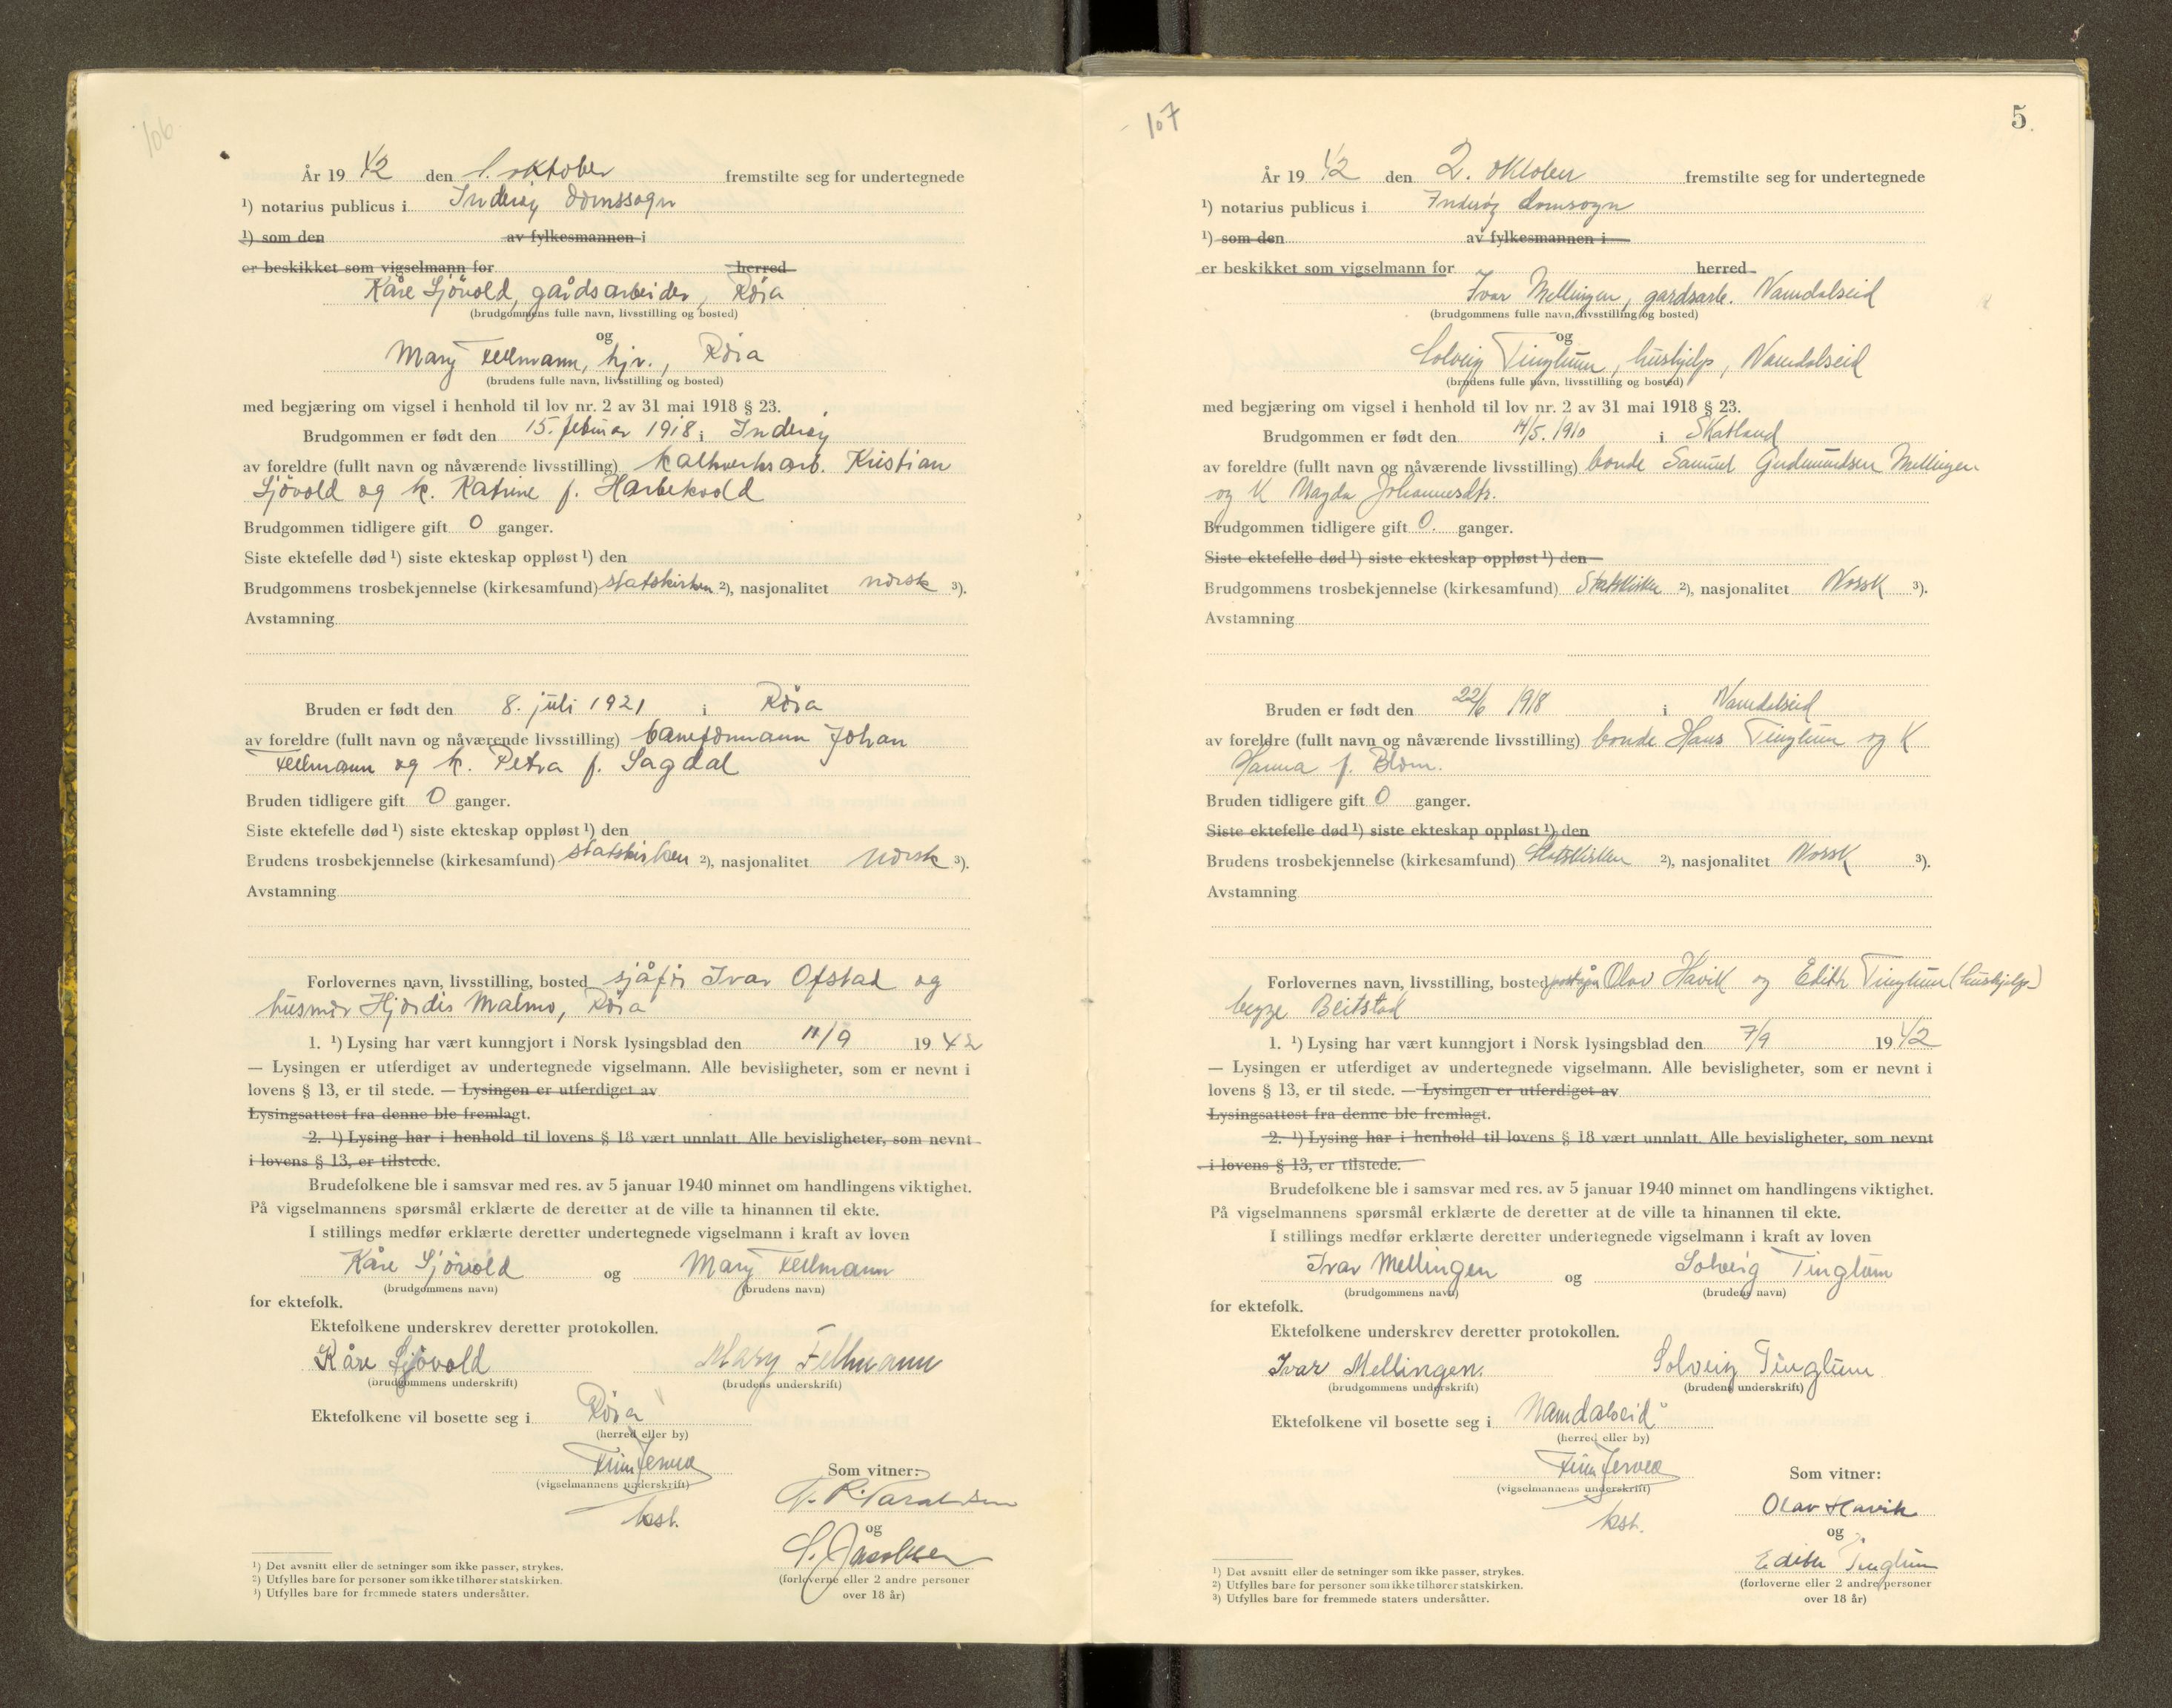 106
År 19 42 den 1. oktober fremstilte seg for undertegnede
¹) notarius publicus i Inderøy domssogn
¹) som den av fylkesmannen i
er beskikket som vigselmann for herred
Kåre Sjövold, gårdsarbeider, Röra
(brudgommens fulle navn, livsstilling og bosted)
og
Mary Fellmann, hjv., Röra
(brudens fulle navn, livsstilling og bosted)
med begjæring om vigsel i henhold til lov nr. 2 av 31 mai 1918 § 23.
Brudgommen er født den 15. februar 1918 i Inderöy
av foreldre (fullt navn og nåværende livsstilling) kalkverksarb. Kristian
Sjövold og k. Katrine f. Harbekvold
Brudgommen tidligere gift 0 ganger.
Siste ektefelle død ¹) siste ekteskap oppløst ¹) den
Brudgommens trosbekjennelse (kirkesamfund) statskirken ²), nasjonalitet norsk ³).
Avstamning
Bruden er født den 8. juli 1921 i Röra
av foreldre (fullt navn og nåværende livsstilling) baneformann Johan
Fellmann og k. Petra f. Sagdal
Bruden tidligere gift 0 ganger.
Siste ektefelle død ¹) siste ekteskap oppløst ¹) den
Brudens trosbekjennelse (kirkesamfund) statskirken ²), nasjonalitet norsk ³).
Avstamning
Forlovernes navn, livsstilling, bosted sjåför Ivar Ofstad og
husmor Hjördis Malmo, Röra
1. ¹) Lysing har vært kunngjort i Norsk lysingsblad den 11/9 19 42
— Lysingen er utferdiget av undertegnede vigselmann. Alle bevisligheter, som er nevnt i
lovens § 13, er til stede. — Lysingen er utferdiget av
Lysingsattest fra denne ble fremlagt.
2. ¹) Lysing har i henhold til lovens § 18 vært unnlatt. Alle bevisligheter, som nevnt
i lovens § 13, er tilstede.
Brudefolkene ble i samsvar med res. av 5 januar 1940 minnet om handlingens viktighet.
På vigselmannens spørsmål erklærte de deretter at de ville ta hinannen til ekte.
I stillings medfør erklærte deretter undertegnede vigselmann i kraft av loven
Kåre Sjövold og Mary Fellmann
(brudgommens navn) (brudens navn)
for ektefolk.
Ektefolkene underskrev deretter protokollen.
Kåre Sjövold Mary Fellmann
(brudgommens underskrift) (brudens underskrift)
Ektefolkene vil bosette seg i Röra
(herred eller by)
Finn Jervea
(vigselmannens underskrift)
kst.
Som vitner:
og
S. Jacobsen
(forloverne eller 2 andre personer
over 18 år)
¹) Det avsnitt eller de setninger som ikke passer, strykes.
²) Utfylles bare for personer som ikke tilhører statskirken.
³) Utfylles bare for fremmede staters undersåtter.
107
5
År 19 42 den 2. oktober fremstilte seg for undertegnede
¹) notarius publicus i Inderøy domsogn
¹) som den av fylkesmannen i
er beskikket som vigselmann for herred
Ivar Mellingen, gardsarb. Namdalseid
(brudgommens fulle navn, livsstilling og bosted)
og
Solveig Tinglum, hushjelp, Namdalseid
(brudens fulle navn, livsstilling og bosted)
med begjæring om vigsel i henhold til lov nr. 2 av 31 mai 1918 § 23.
Brudgommen er født den 14/5. 1910 i Skatland
av foreldre (fullt navn og nåværende livsstilling) bonde Samuel Gudmundsen Mellingen
og K Magda Johannesdtr.
Brudgommen tidligere gift 0. ganger.
Siste ektefelle død ¹) siste ekteskap oppløst ¹) den
Brudgommens trosbekjennelse (kirkesamfund) Statskirken ²), nasjonalitet Norsk ³).
Avstamning
Bruden er født den 22/6 1918 i Namdalseid
av foreldre (fullt navn og nåværende livsstilling) bonde Hans Tinglum og K
Hanna f. Blom.
Bruden tidligere gift 0 ganger.
Siste ektefelle død ¹) siste ekteskap oppløst ¹) den
Brudens trosbekjennelse (kirkesamfund) Statskirken ²), nasjonalitet Norsk ³).
Avstamning
Forlovernes navn, livsstilling, bosted Olav Havik og Edith Tinglum (hushjelp)
begge Beitstad
1. ¹) Lysing har vært kunngjort i Norsk lysingsblad den 7/9 19 42
— Lysingen er utferdiget av undertegnede vigselmann. Alle bevisligheter, som er nevnt i
lovens § 13, er til stede. — Lysingen er utferdiget av
Lysingsattest fra denne ble fremlagt.
2. ¹) Lysing har i henhold til lovens § 18 vært unnlatt. Alle bevisligheter, som nevnt
i lovens § 13, er tilstede.
Brudefolkene ble i samsvar med res. av 5 januar 1940 minnet om handlingens viktighet.
På vigselmannens spørsmål erklærte de deretter at de ville ta hinannen til ekte.
I stillings medfør erklærte deretter undertegnede vigselmann i kraft av loven
Ivar Mellingen og Solveig Tinglum
(brudgommens navn) (brudens navn)
for ektefolk.
Ektefolkene underskrev deretter protokollen.
Ivar Mellingen. Solveig Tinglum
(brudgommens underskrift) (brudens underskrift)
Ektefolkene vil bosette seg i Namdalseid
(herred eller by)
Finn Jervea
(vigselmannens underskrift)
kst.
Som vitner:
Olav Havik
og
Edith Tinglum
(forloverne eller 2 andre personer
over 18 år)
¹) Det avsnitt eller de setninger som ikke passer, strykes.
²) Utfylles bare for personer som ikke tilhører statskirken.
³) Utfylles bare for fremmede staters undersåtter.